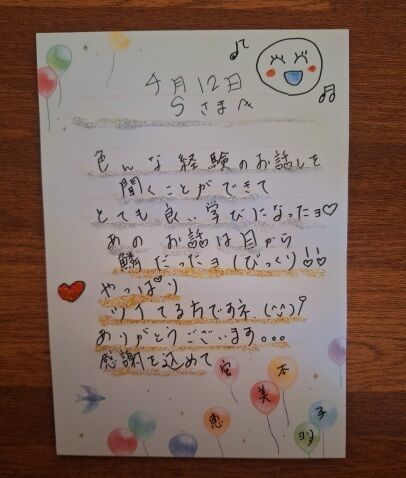 4月12日
Sさまへ
色んな経験のお話しを
聞くことができて
とても良い学びになったヨ♡
あの お話は目から
鱗だったヨ(びっくり)!!
やっぱり
ツイてる方ですネ.(^^)
ありがとうございます...
感謝を込めて
宮本
恵美子
ヨリ